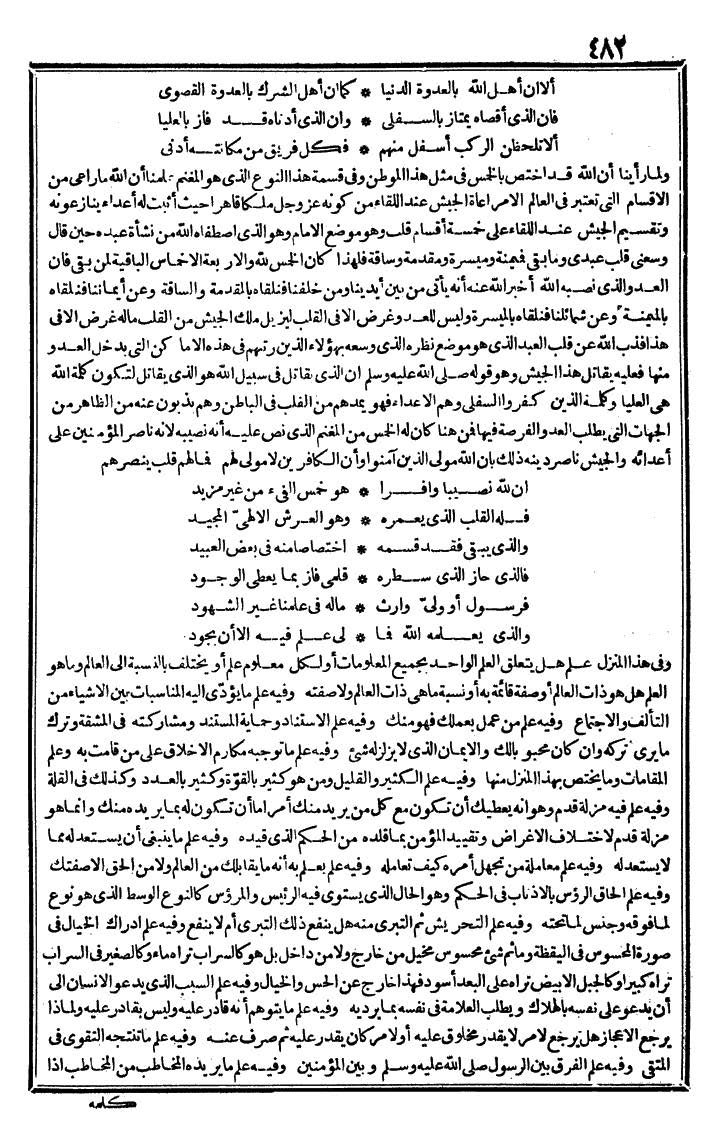 ٤٨٢
ألا ان أهل الله بالعدوة الدنيا * كما ان أهل الشرك بالعدوة القصوى
فان الذي أقصاه يمتاز بالسفلى * وان الذي أدناه قد فاز بالعليا
ألا تلحظن الركب أسفل منهم * فكل فريق من مكانته أدنى
ولما رأينا أن الله قد اختص بالخمس في مثل هذا الموطن وفي قسمة هذا النوع الذي هو المغنم علمنا أن الله ما راعى من
الاقسام التي تعتبر في العالم الا مراعاة الجيش عند اللقاء من كونه عز وجل ملكا قاهرا حيث أثبت له أعداء ينازعونه
وتقسيم الجيش عند اللقاء على خمسة أقسام قلب وهو موضع الامام وهو الذي اصطفاه الله من نشأة عبده حين قال
وسعني قلب عبدي وما بقي فميمنة وميسرة ومقدمة وساقة فلهذا كان الخمس لله والاربعة الاخماس الباقية لمن بقي فان
العدو الذي نصبه الله أخبر الله عنه أنه يأتي من بين أيدينا ومن خلفنا فنلقاه بالمقدمة والساقة وعن أيماننا فنلقاه
بالميمنة وعن شمائلنا فنلقاه بالميسرة وليس للعدو غرض الا في القلب ليزيل ملك الجيش من القلب ماله غرض الا في
هذا فذب الله عن قلب العبد الذي هو موضع نظره الذي وسعه بهؤلاء الذين رتبهم في هذه الاماكن التي يدخل العدو
منها فعليه يقاتل هذا الجيش وهو قوله صلى الله عليه وسلم ان الذي يقاتل في سبيل الله هو الذي يقاتل لتكون كلمة الله
هي العليا وكلمة الذين كفروا السفلى وهم الاعداء فهو يمدهم من القلب في الباطن وهم يذبون عنه من الظاهر من
الجهات التي يطلب العدو الفرصة فيها فمن هنا كان له الخمس من المغنم الذي نص عليه أنه نصيبه لانه ناصر المؤمنين على
أعدائه والجيش ناصر دينه ذلك بان الله مولى الذين آمنوا وأن الكافرين لا مولى لهم فما لهم قلب ينصرهم
ان لله نصيبا وافرا * هو خمس الفيء من غير مزيد
فله القلب الذي يعمره * وهو العرش الالهيّ المجيد
والذي يبقى فقد قسمه * اختصاصا منه في بعض العبيد
فالذي حاز الذي سطره * قلمي فاز بما يعطي الوجود
فرسول أو وليّ وارث * ماله في علمنا غير الشهود
والذي يعلمه الله فما * لي علم فيه الا أن يجود
وفي هذا المنزل علم هل يتعلق العلم الواحد بجميع المعلومات أو لكل معلوم علم أو يختلف بالنسبة الى العالم وما هو
العلم هل هو ذات العالم أو صفة قائمة به أو نسبة ما هي ذات العالم ولا صفته وفيه علم ما يؤدّي اليه المناسبات بين الاشياء من
التألف والاجتماع وفيه علم من عمل بعملك فهو منك وفيه علم الاستناد وحماية المستند ومشاركته في المشقة وترك
ما يرى تركه وان كان محبوبا لك والايمان الذي لا يزلزله شئ وفيه علم ما توجبه مكارم الاخلاق على من قامت به وعلم
المقامات وما يختص بهذا المنزل منها وفيه علم الكثير والقليل ومن هو كثير بالقوّة وكثير بالعدد وكذلك في القلة
وفيه علم فيه مزلة قدم وهو انه يعطيك أن تكون مع كل من يريد منك أمرا ما أن تكون له بما يريده منك وانما هو
مزلة قدم لاختلاف الاغراض وتقييد المؤمن بما قلده من الحكم الذي قيده وفيه علم ما ينبغي أن يستعد له مما
لا يستعد له وفيه علم معاملة من تجهل أمره كيف تعامله وفيه علم يعلم به أنه ما يقابلك من العالم ولا من الحق الا صفتك
وفيه علم الحاق الرؤس بالاذناب في الحكم وهو الحال الذي يستوي فيه الرئيس والمرؤس كالنوع الوسط الذي هو نوع
لما فوقه وجنس لما تحته وفيه علم التحريش ثم التبري منه هل ينفع ذلك التبري أم لا ينفع وفيه علم ادراك الخيال في
صورة المحسوس في اليقظة وما ثم شئ محسوس مخيل من خارج ولا من داخل بل هو كالسراب تراه ماء وكالصغير في السراب
تراه كبيرا وكالجبل الابيض تراه على البعد أسود فهذا خارج عن الحس والخيال وفيه علم السبب الذي يدعو الانسان الى
أن يدعو على نفسه بالهلاك ويطلب العلامة في نفسه بما يرديه وفيه علم ما يتوهم أنه قادر عليه وليس بقادر عليه ولماذا
يرجع الاعجاز هل يرجع لامر لا يقدر مخلوق عليه أو لامر كان يقدر عليه ثم صرف عنه وفيه علم ما تنتجه التقوى في
المتقي وفيه علم الفرق بين الرسول صلى الله عليه وسلم وبين المؤمنين وفيه علم ما يريده المخاطب من المخاطب اذا
كلمه